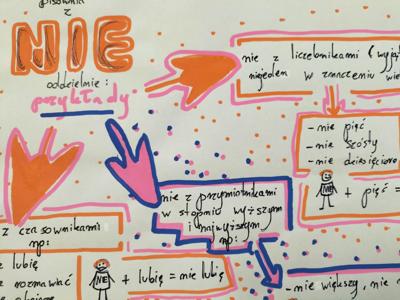 pisownia
z
NIE
oddzielnie:
przykłady
nie z liczebnikami (wyjąt
niejeden w znaczeniu wie
- nie pięć
- nie szósty
- nie dziesięcioro
NIE + pięć =
nie z przymiotnikami
w stopniu wyższym
i najwyższym
np:
z czasownikami
np:
z lubię
z rozmawiać
NIE + lubię = nie lubię
- nie większy, nie n